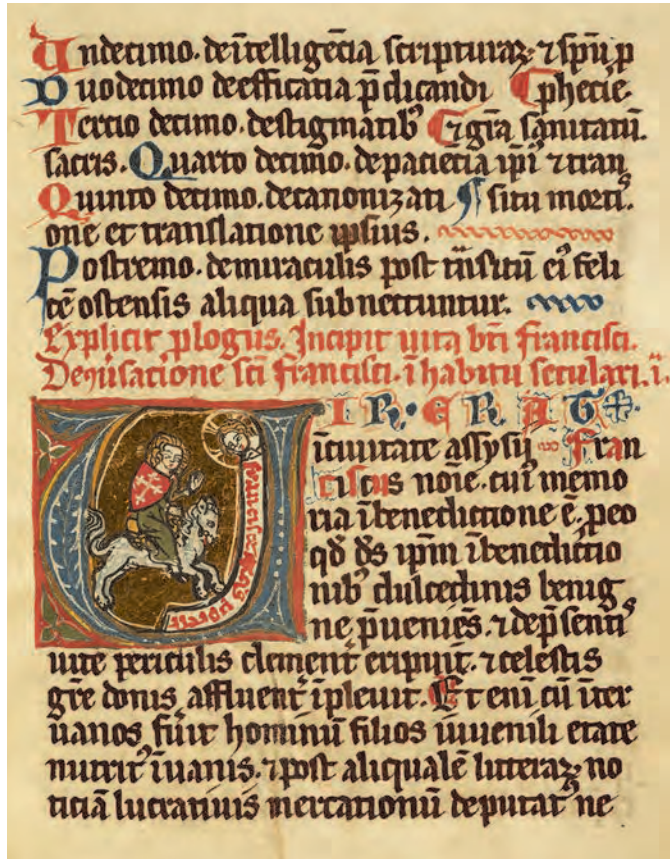 Undecimo. de ītelligētia scripturaꝝ ⁊ spū p
Duodecimo de efficatia p̄dicandi ¶ phetie.
Tertio decimo. de stigmatib⁹ ¶ ⁊ grā sanitatū.
sacris. Quarto decimo. de paciētia ip̄i⁹ ⁊ tran
Quinto decimo. de canonizati ¶ situ morti⁹.
one et translatione ipsius.
Postremo. de miraculis post trāsitū ei⁹ feli
cē ostensis aliqua subnectuntur.
Explicit plogus. Incipit uita bti francisci.
De ɔuersatione sci francisci. ī habitu seculari. i.
VIR ERAT
ī ciuitate assysij Fran
ciscus noīe. cui⁹ memo
ria ī benedictione ē. p eo
qd d̄s ip̄m ī benedictio
nib⁹ dulcedinis benig
ne p̄ueniēs. ⁊ de p̄senti⁹
uite periculis clement̄ eripuit. ⁊ celestis
grē donis affluent̄ īpleuit. Et enī cū īter
uanos fu̓it hominū filios iuuenili etate
nutrit⁹ ī uanis. ⁊ post aliqualē litteraꝝ no
ticiā lucratiuis mercationū deputat⁹ ne